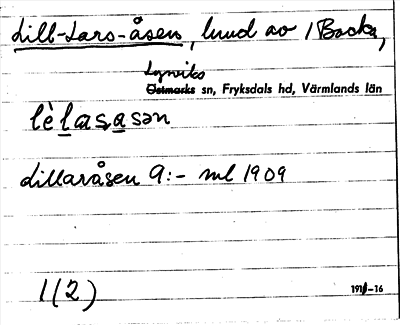 Lill-Lars-åsen, lund av 1 Backa,
Lysviks
Östmarks sn, Fryksdals hd, Värmlands län
lèlasasən
Lillaråsen A:- ml 1909
1(2)
191-16